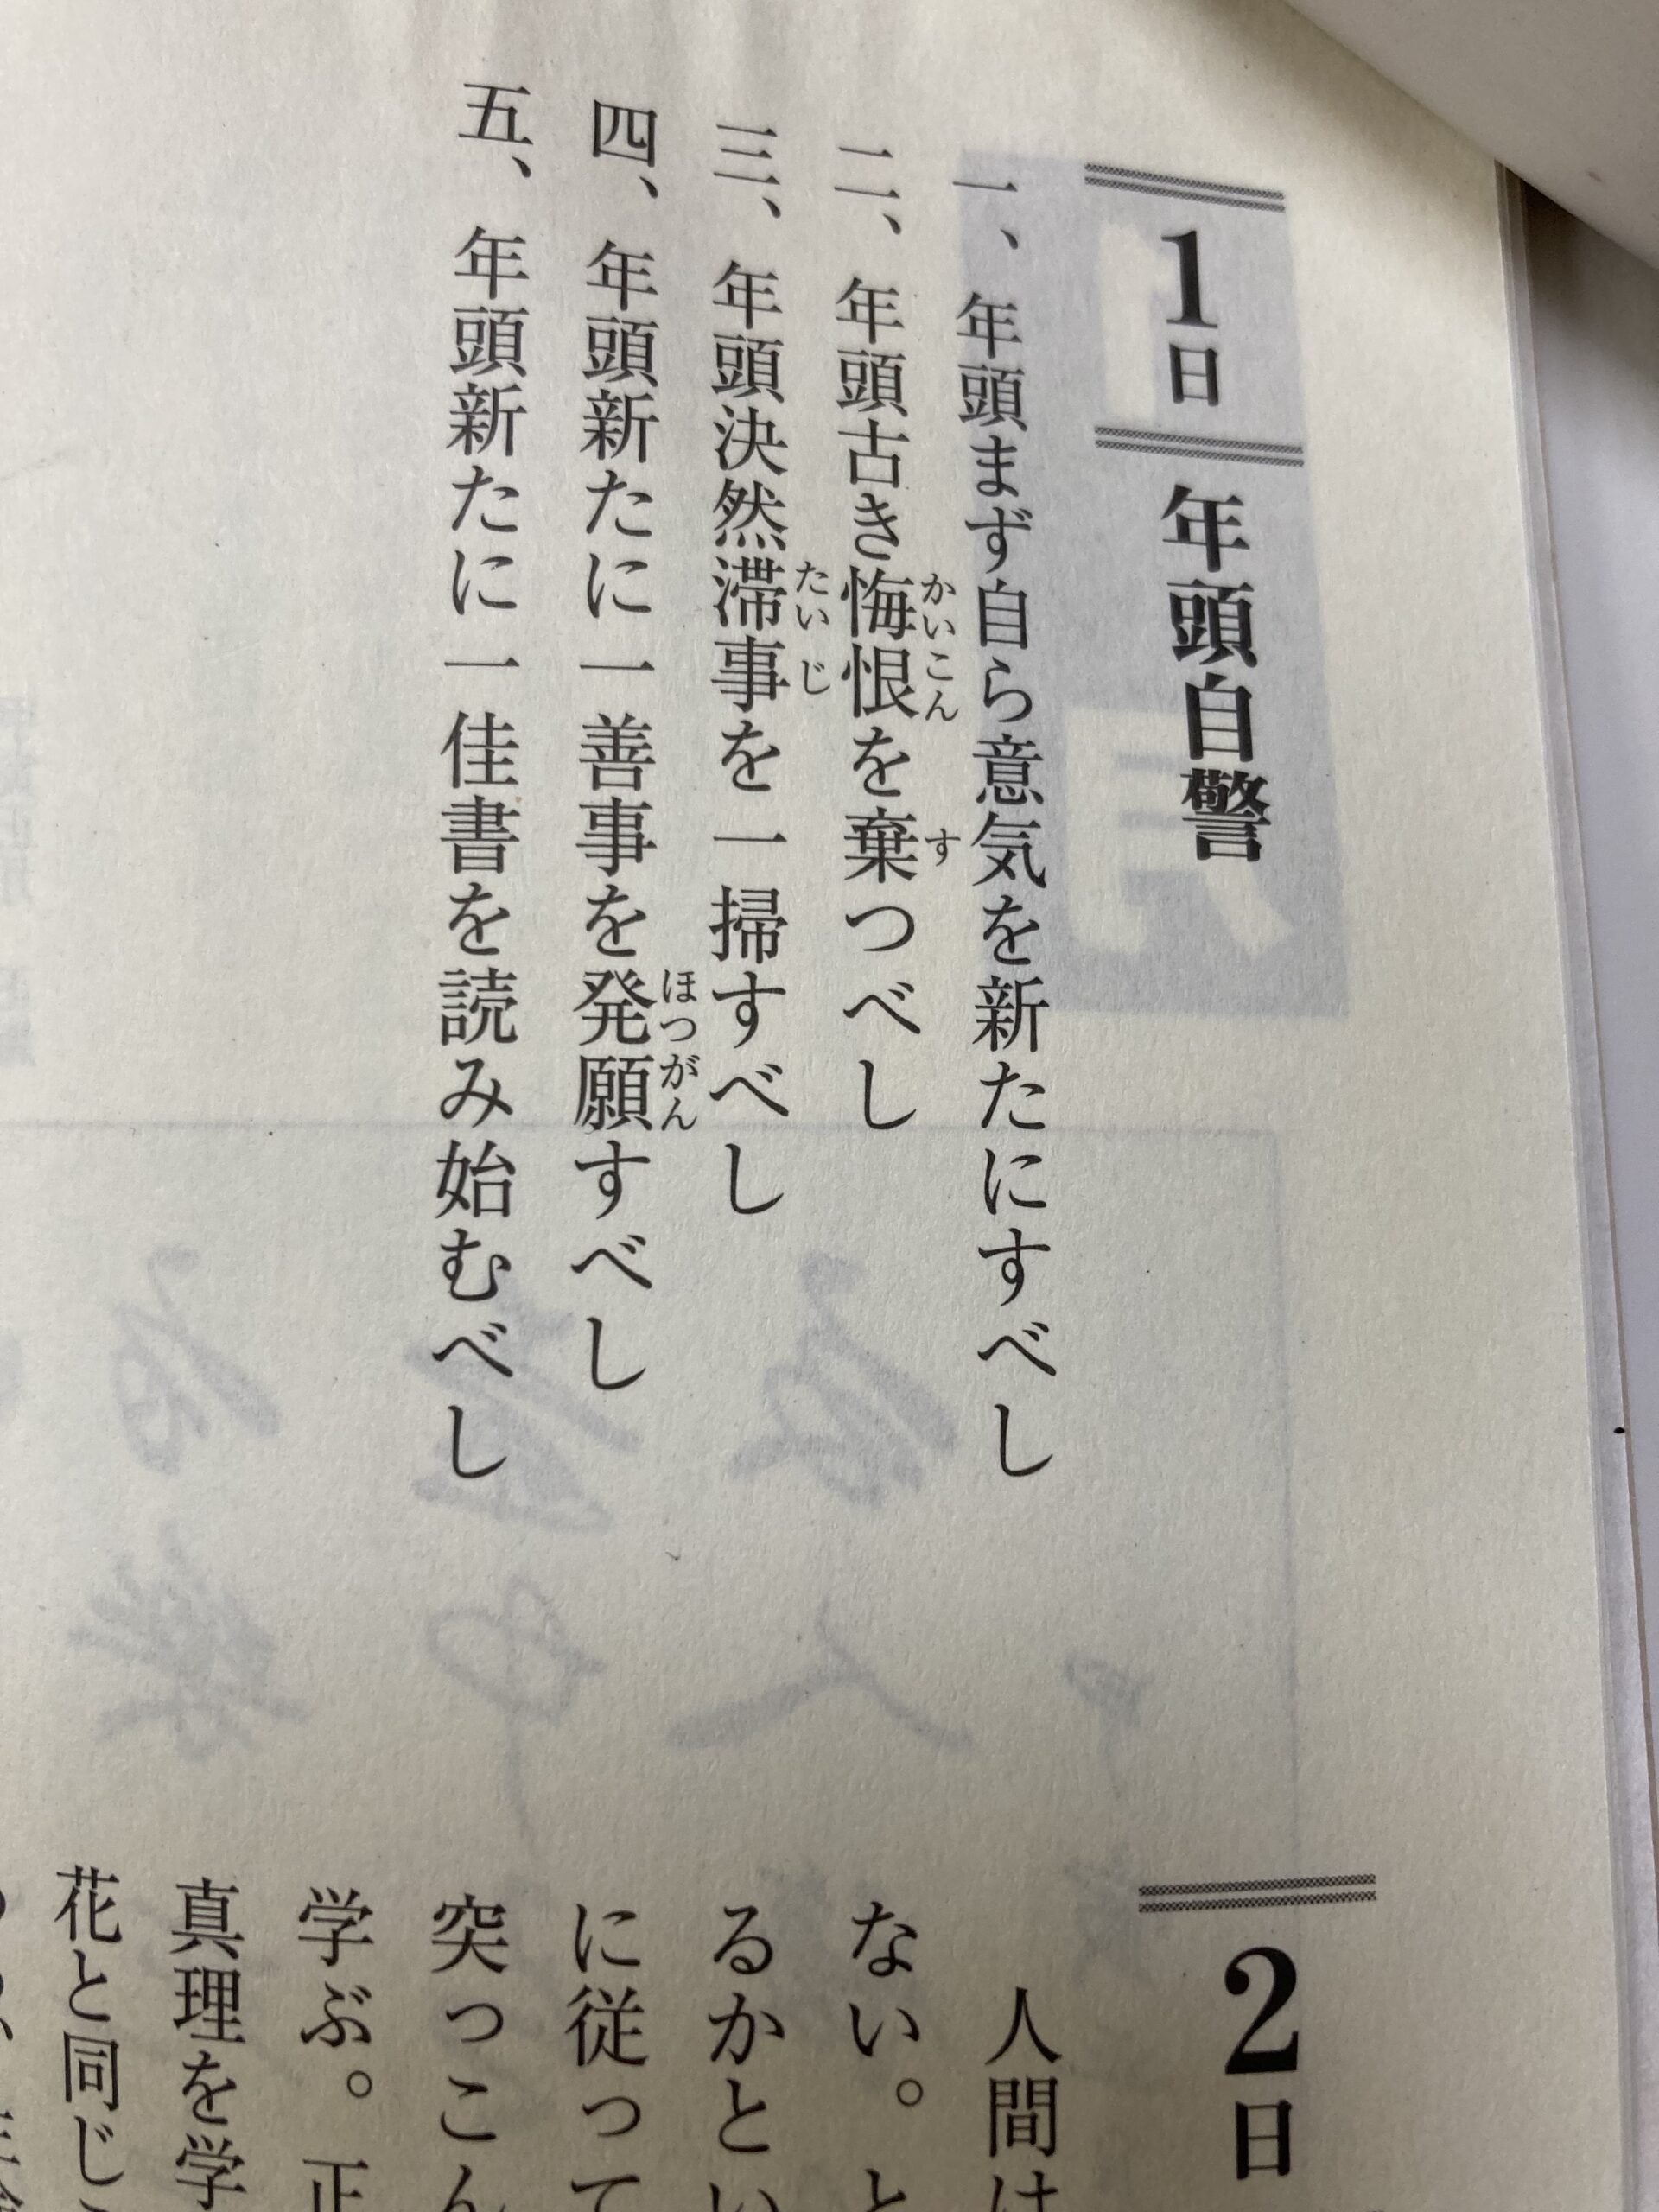 1日 年頭自警
一、年頭まず自ら意気を新たにすべし
二、年頭古き悔恨を棄つべし
かいこん す
三、年頭決然滞事を一掃すべし
たいじ
四、年頭新たに一善事を発願すべし
ほつがん
五、年頭新たに一佳書を読み始むべし
2日
人間は
ない。と
るかとい
に従って
突っこん
学ぶ。正
真理を学
花と同じ